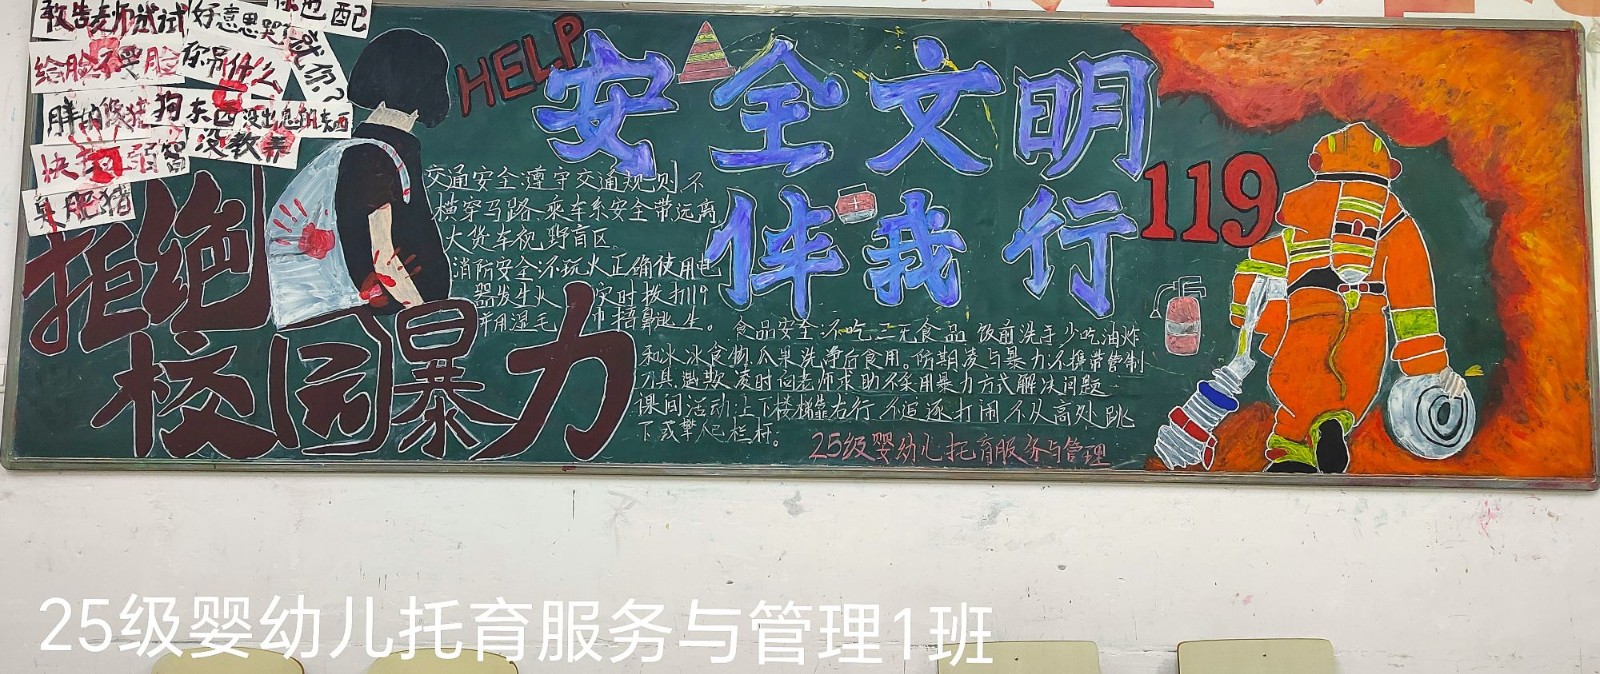 敢告老师试试
好意思哭
你也配
给脸不要脸
你算什么
胖的像猪
狗东西
没出息的东西
没教养
臭肥猪
HELP
安全文明
伴我行
119
拒绝
校园暴力
交通安全:遵守交通规则,不
横穿马路、乘车系安全带远离
大货车视野盲区。
消防安全:不玩火正确使用电
器发生火 实时拨打119
并用湿毛巾捂鼻逃生。
食品安全:不吃三无食品 饭前洗手少吃油炸
和冰冷食物.瓜果洗净后食用。防期凌与暴力:不携带管制
刀具.遇欺凌时向老师求助不采用暴力方式解决问题
课间活动:上下楼梯靠右行.不追逐打闹.不从高处跳
下或攀爬栏杆。
25级婴幼儿托育服务与管理
25级婴幼儿托育服务与管理1班